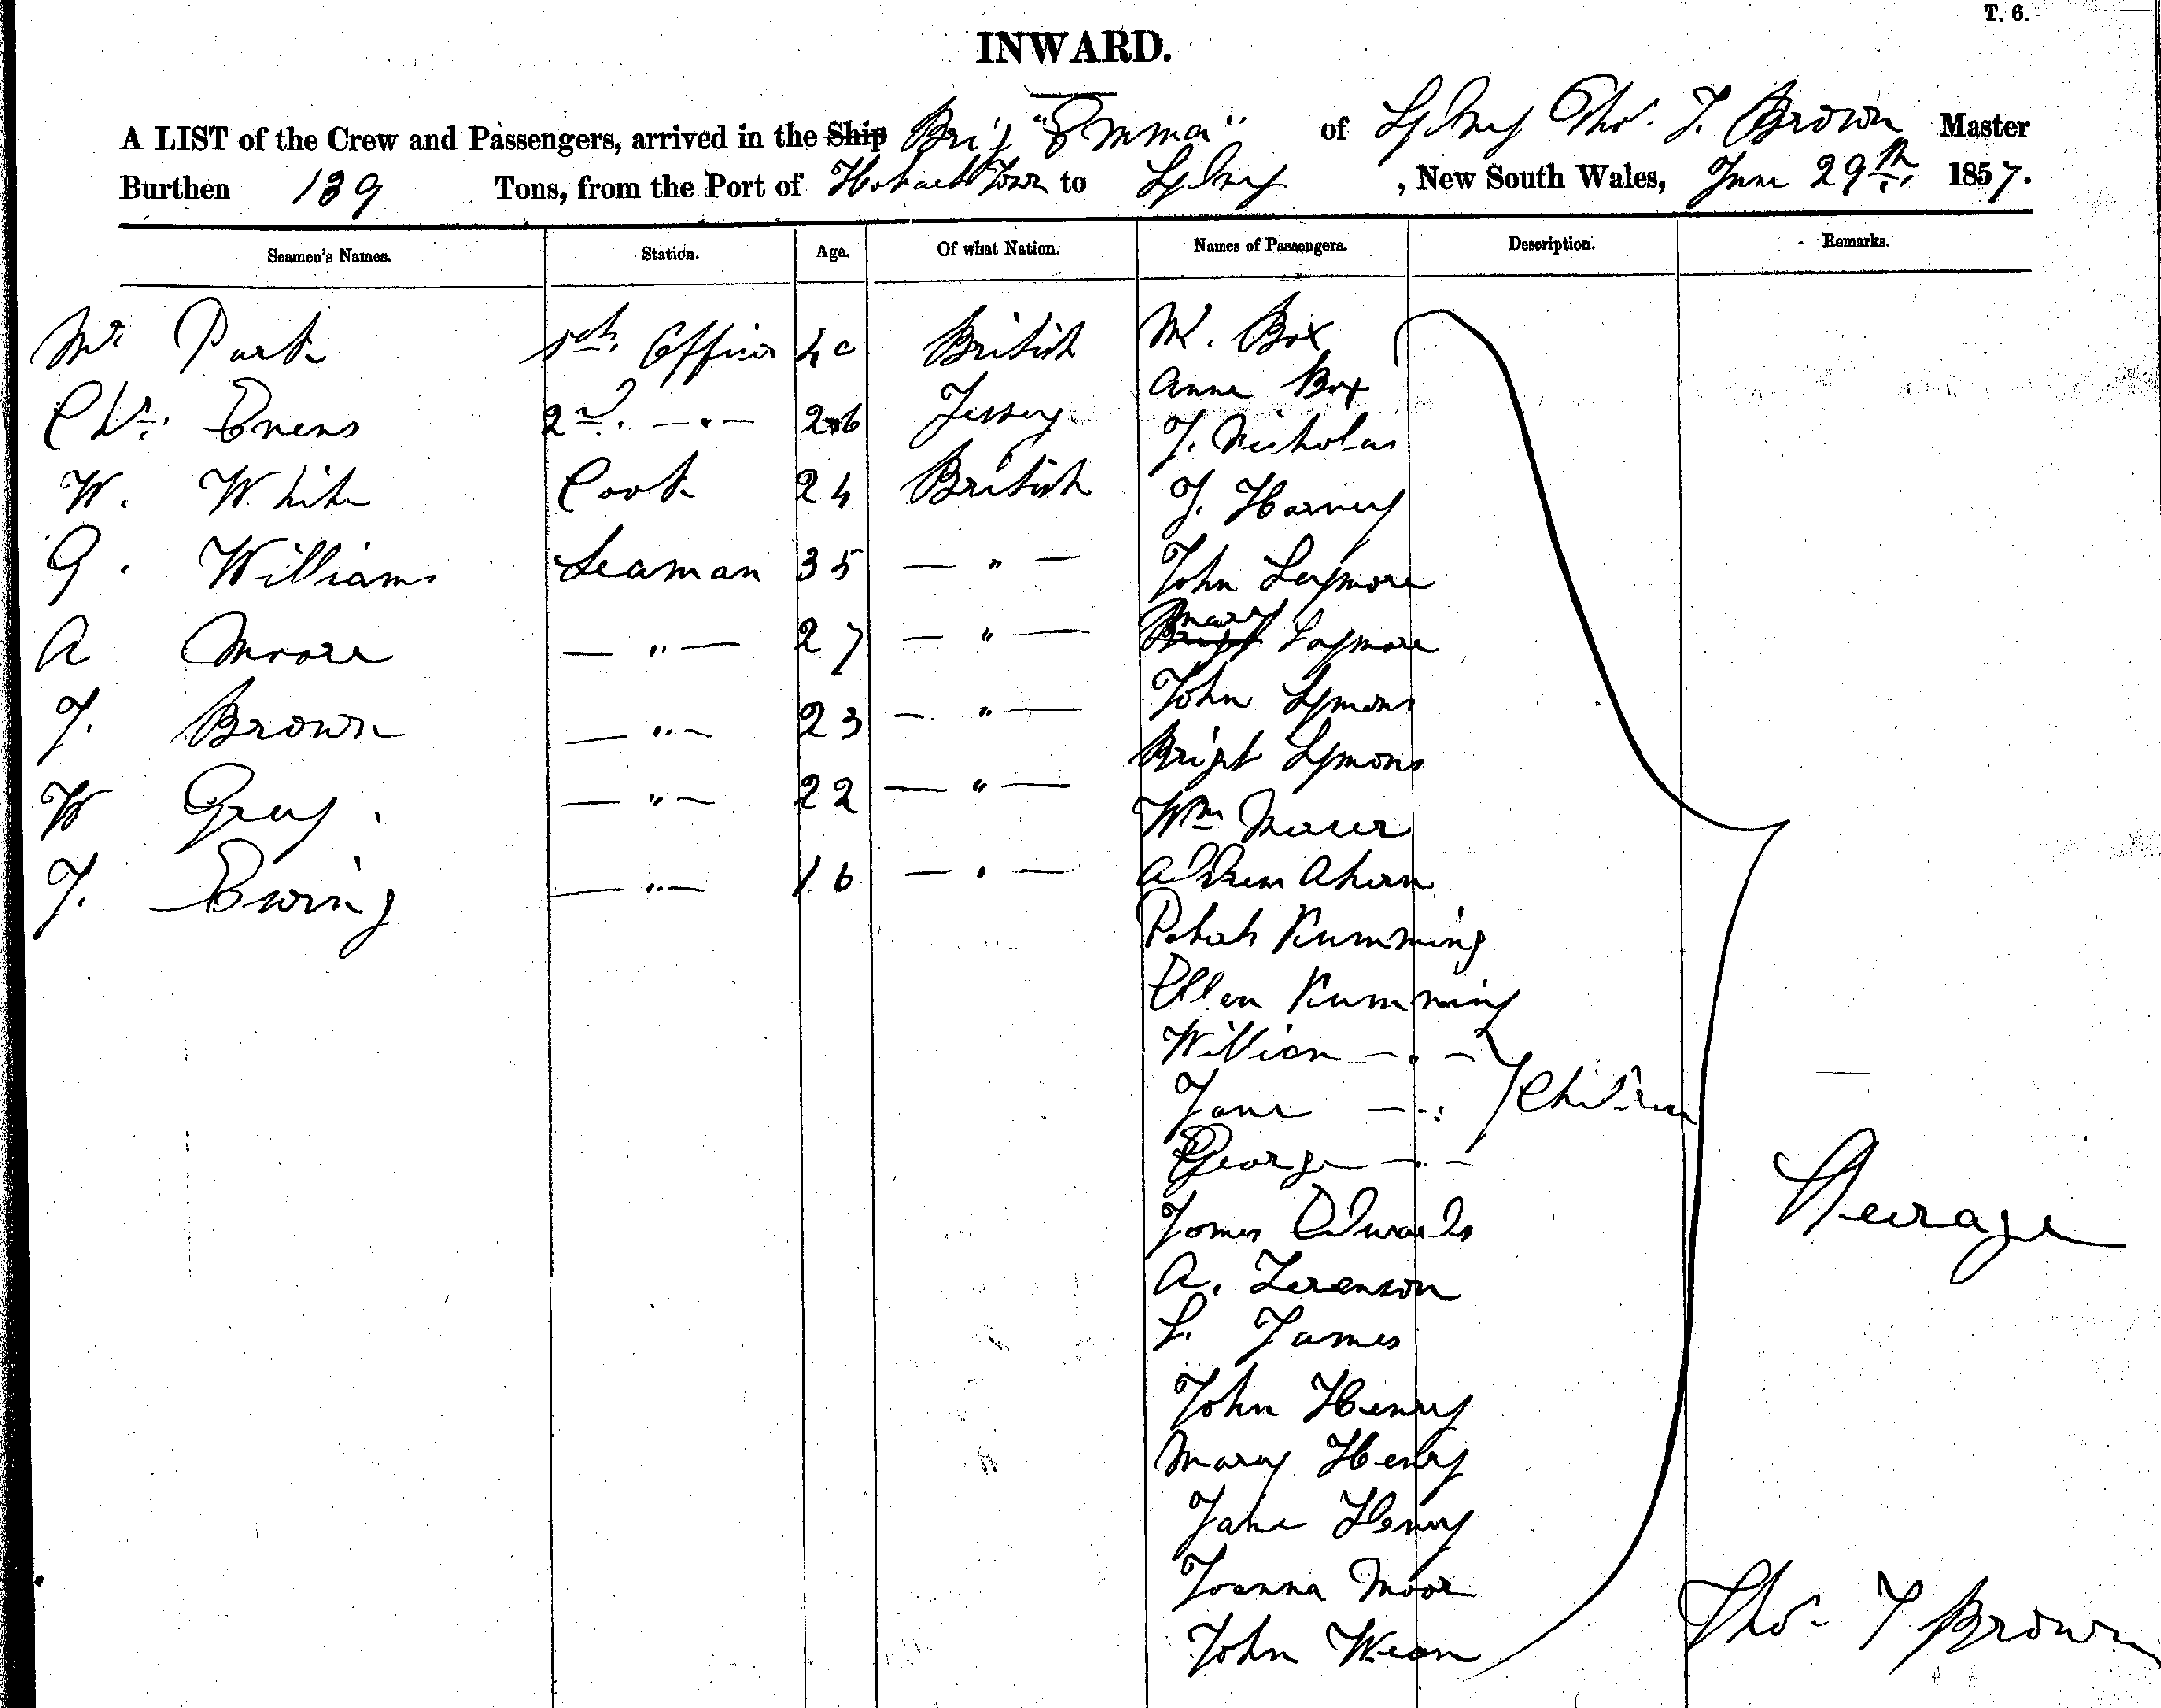 T. 6.
INWARD.
A LIST of the Crew and Passengers, arrived in the Ship Brig "Emma" of Sydney Tho.s T. Brown Master
Burthen 139 Tons, from the Port of Hobart Town to Sydney, New South Wales, June 29th. 1857.
Seamen's Names. Station. Age. Of what Nation. Names of Passengers. Description. Remarks.
Mr Park 1st. Officer 40 British M. Box
Anne Box
Chs. Evens 2nd. — " — 26 Jersey T. Nicholas
W. White Cook 24 British J. Harvey
G. Williams Seaman 35 — " — John Seymore
A Moore — " — 27 — " — Mary Seymore
J. Brown — " — 23 — " — John Symons
Bright Symons
W Gray — " — 22 — " — Wm
J. Ewing — " — 16 — " — Ahern
Patrick Kumming
Ellen Kumming
William — " —
Jane — " — Children
George — " —
Steerage
James Edwards
A. Terenson
S. James
John Henry
Mary Henry
Jane Henry
Joanna Moor
John Wean
Tho.s T Brown